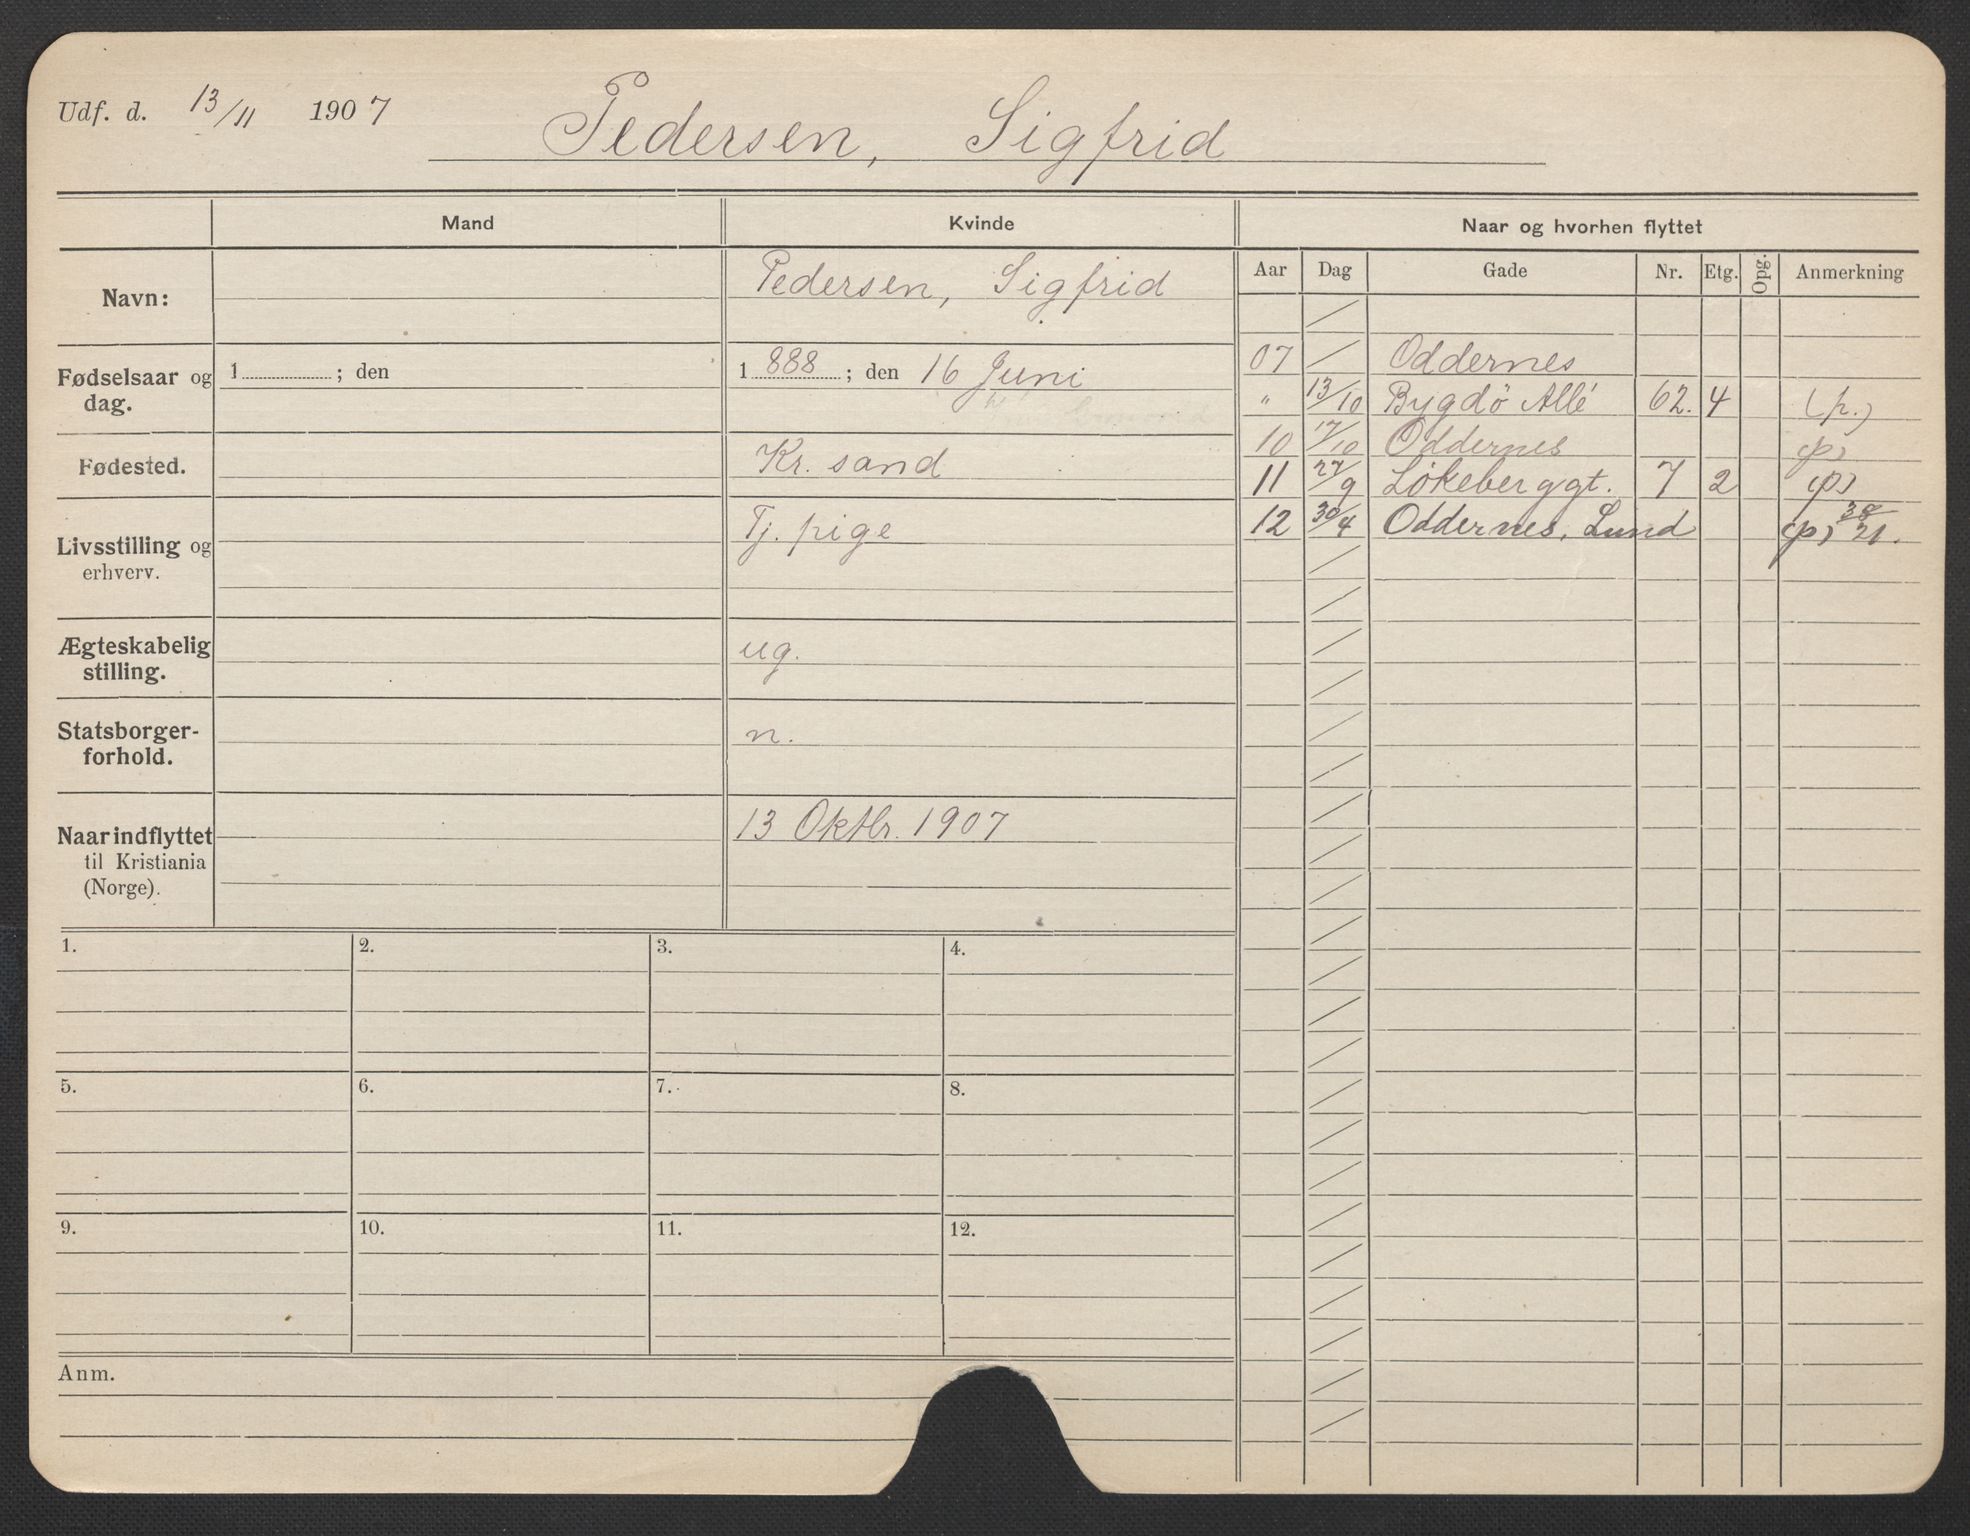 Udf. d. 13/11 1907 Pedersen, Sigfrid
Mand Kvinde Naar og hvorhen flyttet
Aar Dag Gade Nr. Etg. Opg. Anmerkning
Navn: Pedersen, Sigfrid
Fødselsaar og dag. 1 ; den 1888 ; den 16 Juni
Fødested. Kr. sand
Livsstilling og erhverv. Tj. pige
Ægteskabelig stilling. ug.
Statsborger-forhold. n.
Naar indflyttet til Kristiania (Norge). 13 Oktbr. 1907
07 Oddernes
" 13/10 Bygdö Allé 62. 4 (p.)
10 17/10 Oddernes (p)
11 27/9 Løkeberggt. 7 2 (p)
12 30/4 Oddernes, Lund (p)
1. 2. 3. 4.
5. 6. 7. 8.
9. 10. 11. 12.
Anm.